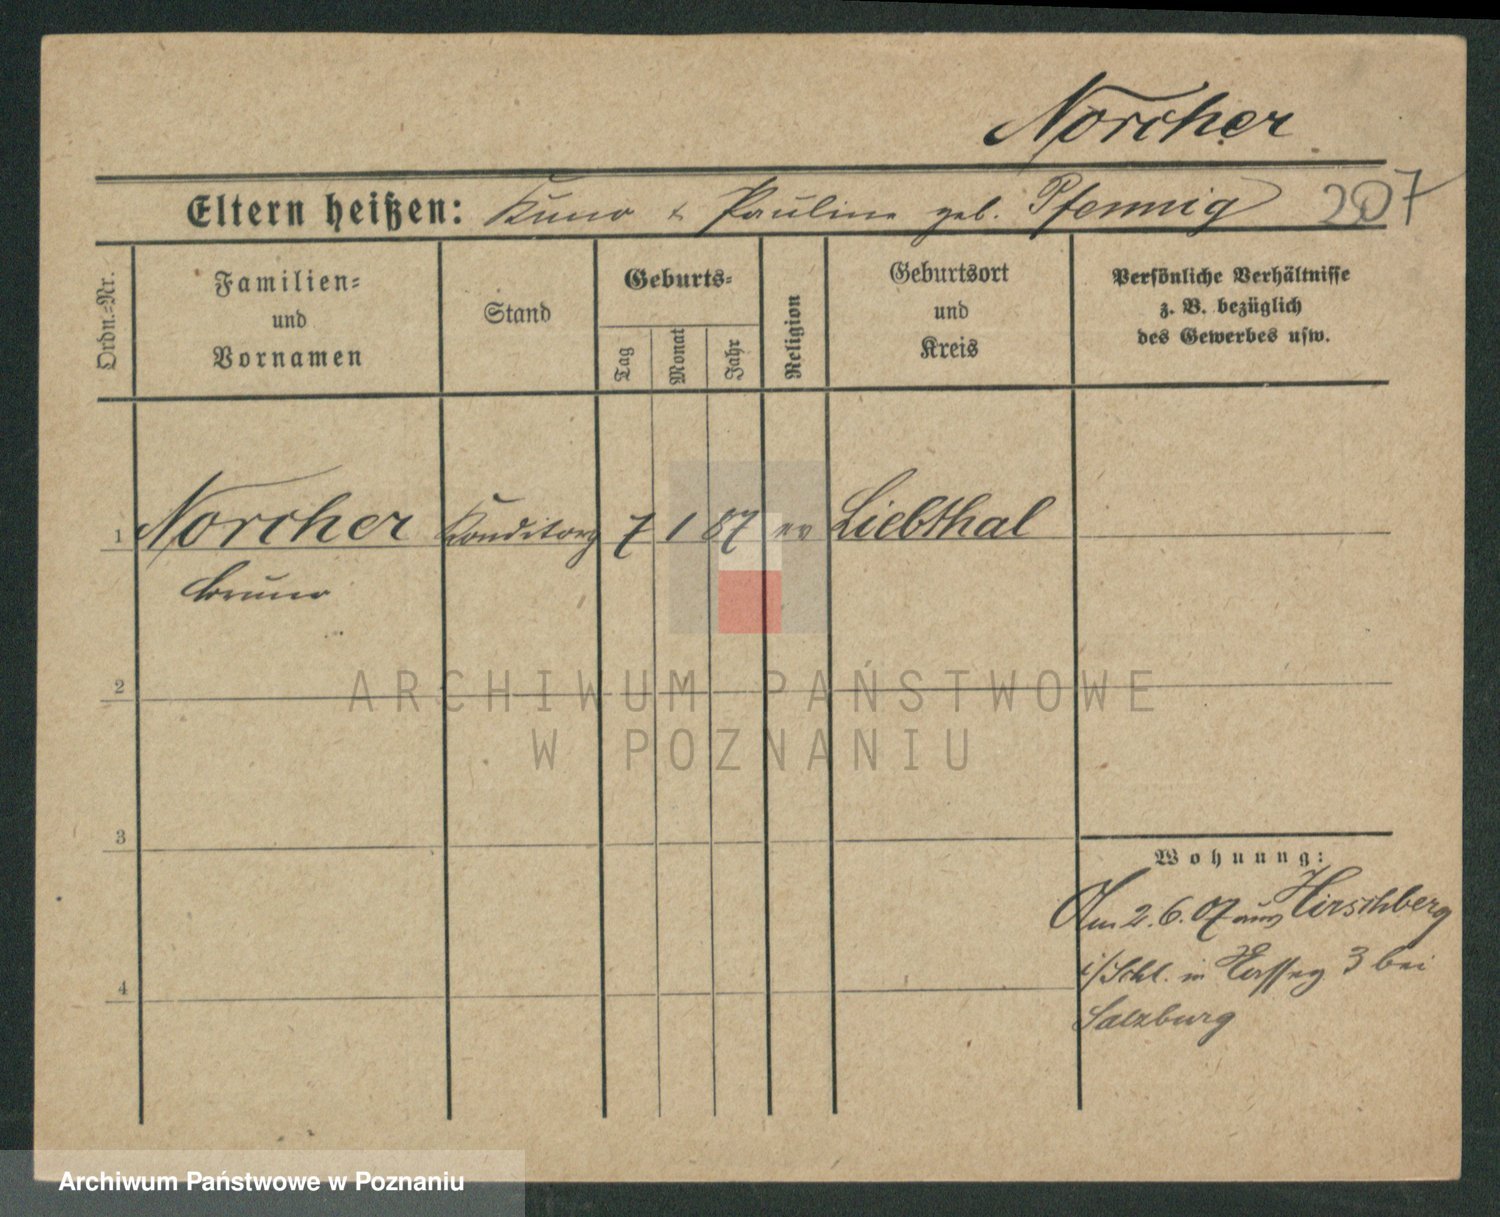 Norcher
Eltern heißen: Kuno & Pauline geb. Pfennig 207
Ordn.-Nr.
Familien-
und
Vornamen
Stand
Geburts-
Tag
Monat
Jahr
Religion
Geburtsort
und
Kreis
Persönliche Verhältnisse
z. B. bezüglich
des Gewerbes usw.
1 Norcher Konditorg 7 1 87 ev Liebthal
Bruno
2
ARCHIWUM PAŃSTWOWE
W POZNANIU
3
Wohnung:
Am 2.6.07 aus Hirschberg
4
i/Schl. in 3 bei
Salzburg
Archiwum Państwowe w Poznaniu